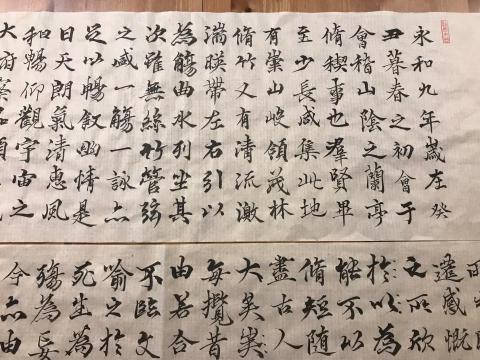 永和九年歲在癸
丑暮春之初會于
會稽山陰之蘭亭
脩稧事也羣賢畢
至少長咸集此地
有崇山峻領茂林
脩竹又有清流激
湍暎帶左右引以
為觴曲水列坐其
次雖無絲竹管弦
之盛一觴一詠亦
足以暢敘幽情是
日天朗氣清惠風
和暢仰觀宇宙之
大府察品類
遷感慨
之所欣
於以為
能不以
脩短隨
盡古人
大矣
每攬昔
由若合
不臨文
喻之於
死生為
殤為妄
今亦由